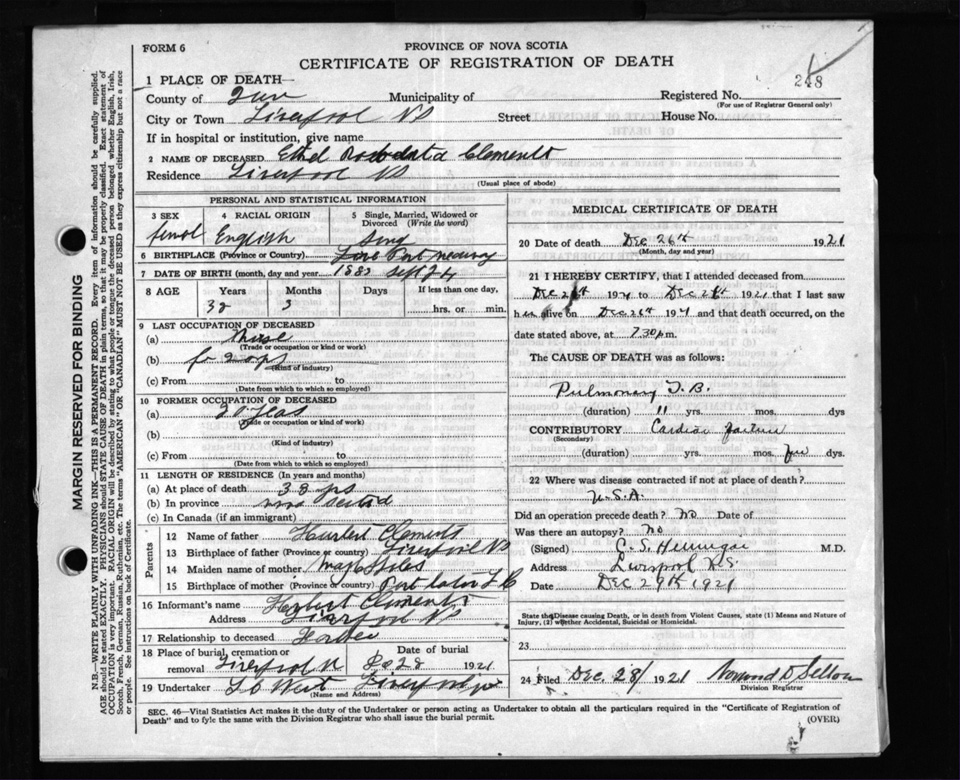 FORM 6
PROVINCE OF NOVA SCOTIA
CERTIFICATE OF REGISTRATION OF DEATH
248
1 PLACE OF DEATH—
County of Municipality of Registered No.
(For use of Registrar General only)
City or Town Liverpool NS Street House No.
If in hospital or institution, give name
2 NAME OF DECEASED Ethel Clements
Residence Liverpool NS
(Usual place of abode)
PERSONAL AND STATISTICAL INFORMATION
3 SEX 4 RACIAL ORIGIN 5 Single, Married, Widowed or Divorced (Write the word)
English
6 BIRTHPLACE (Province or Country) Port Medway
7 DATE OF BIRTH (month, day and year) Sept
8 AGE Years Months Days If less than one day,
38 3 hrs. or min.
9 LAST OCCUPATION OF DECEASED
(a) Nurse
(Trade or occupation or kind or work)
(b)
(Kind of industry)
(c) From to
(Date from which to which so employed)
10 FORMER OCCUPATION OF DECEASED
(a)
(Trade or occupation or kind or work)
(b)
(Kind of industry)
(c) From to
(Date from which to which so employed)
11 LENGTH OF RESIDENCE (In years and months)
(a) At place of death 38
(b) In province
(c) In Canada (if an immigrant)
Parents
12 Name of father Clements
13 Birthplace of father (Province or country) Liverpool NS
14 Maiden name of mother
15 Birthplace of mother (Province or country) Port
16 Informant's name Herbert Clements
Address Liverpool NS
17 Relationship to deceased
18 Place of burial, cremation or removal Liverpool Date of burial 28 1921
19 Undertaker West Liverpool
(Name and Address)
MEDICAL CERTIFICATE OF DEATH
20 Date of death Dec 26th 1921
(Month, day and year)
21 I HEREBY CERTIFY, that I attended deceased from
Dec 192 to Dec 1921 that I last saw
h alive on Dec 26th 192 and that death occurred, on the
date stated above, at 7.30 p.m.
The CAUSE OF DEATH was as follows:
Pulmonary T.B.
(duration) 11 yrs. mos. dys
CONTRIBUTORY Cardiac failure
(Secondary)
(duration) yrs. mos. few dys.
22 Where was disease contracted if not at place of death?
U.S.A.
Did an operation precede death? No Date of
Was there an autopsy? No
(Signed) M.D.
Address Liverpool N.S.
Date Dec 29th 1921
State the Disease causing Death, or in death from Violent Causes, state (1) Means and Nature of Injury, (2) whether Accidental, Suicidal or Homicidal.
23
24 Filed Dec. 28/ 1921
Division Registrar
SEC. 46—Vital Statistics Act makes it the duty of the Undertaker or person acting as Undertaker to obtain all the particulars required in the "Certificate of Registration of Death" and to fyle the same with the Division Registrar who shall issue the burial permit.
(OVER)
MARGIN RESERVED FOR BINDING
N.B.—WRITE PLAINLY WITH UNFADING INK—THIS IS A PERMANENT RECORD. Every item of information should be carefully supplied.
AGE should be stated EXACTLY. PHYSICIANS should STATE CAUSE OF DEATH in plain terms, so that it may be properly classified. Exact statement of
OCCUPATION is very important. RACIAL ORIGIN will be described by stating to what people or tongue the deceased person belonged whether English, Irish,
Scotch, French, German, Russian, Ruthenian, etc. The terms "AMERICAN" OR "CANADIAN" MUST NOT BE USED as they express citizenship but not a race
or people. See instructions on back of Certificate.